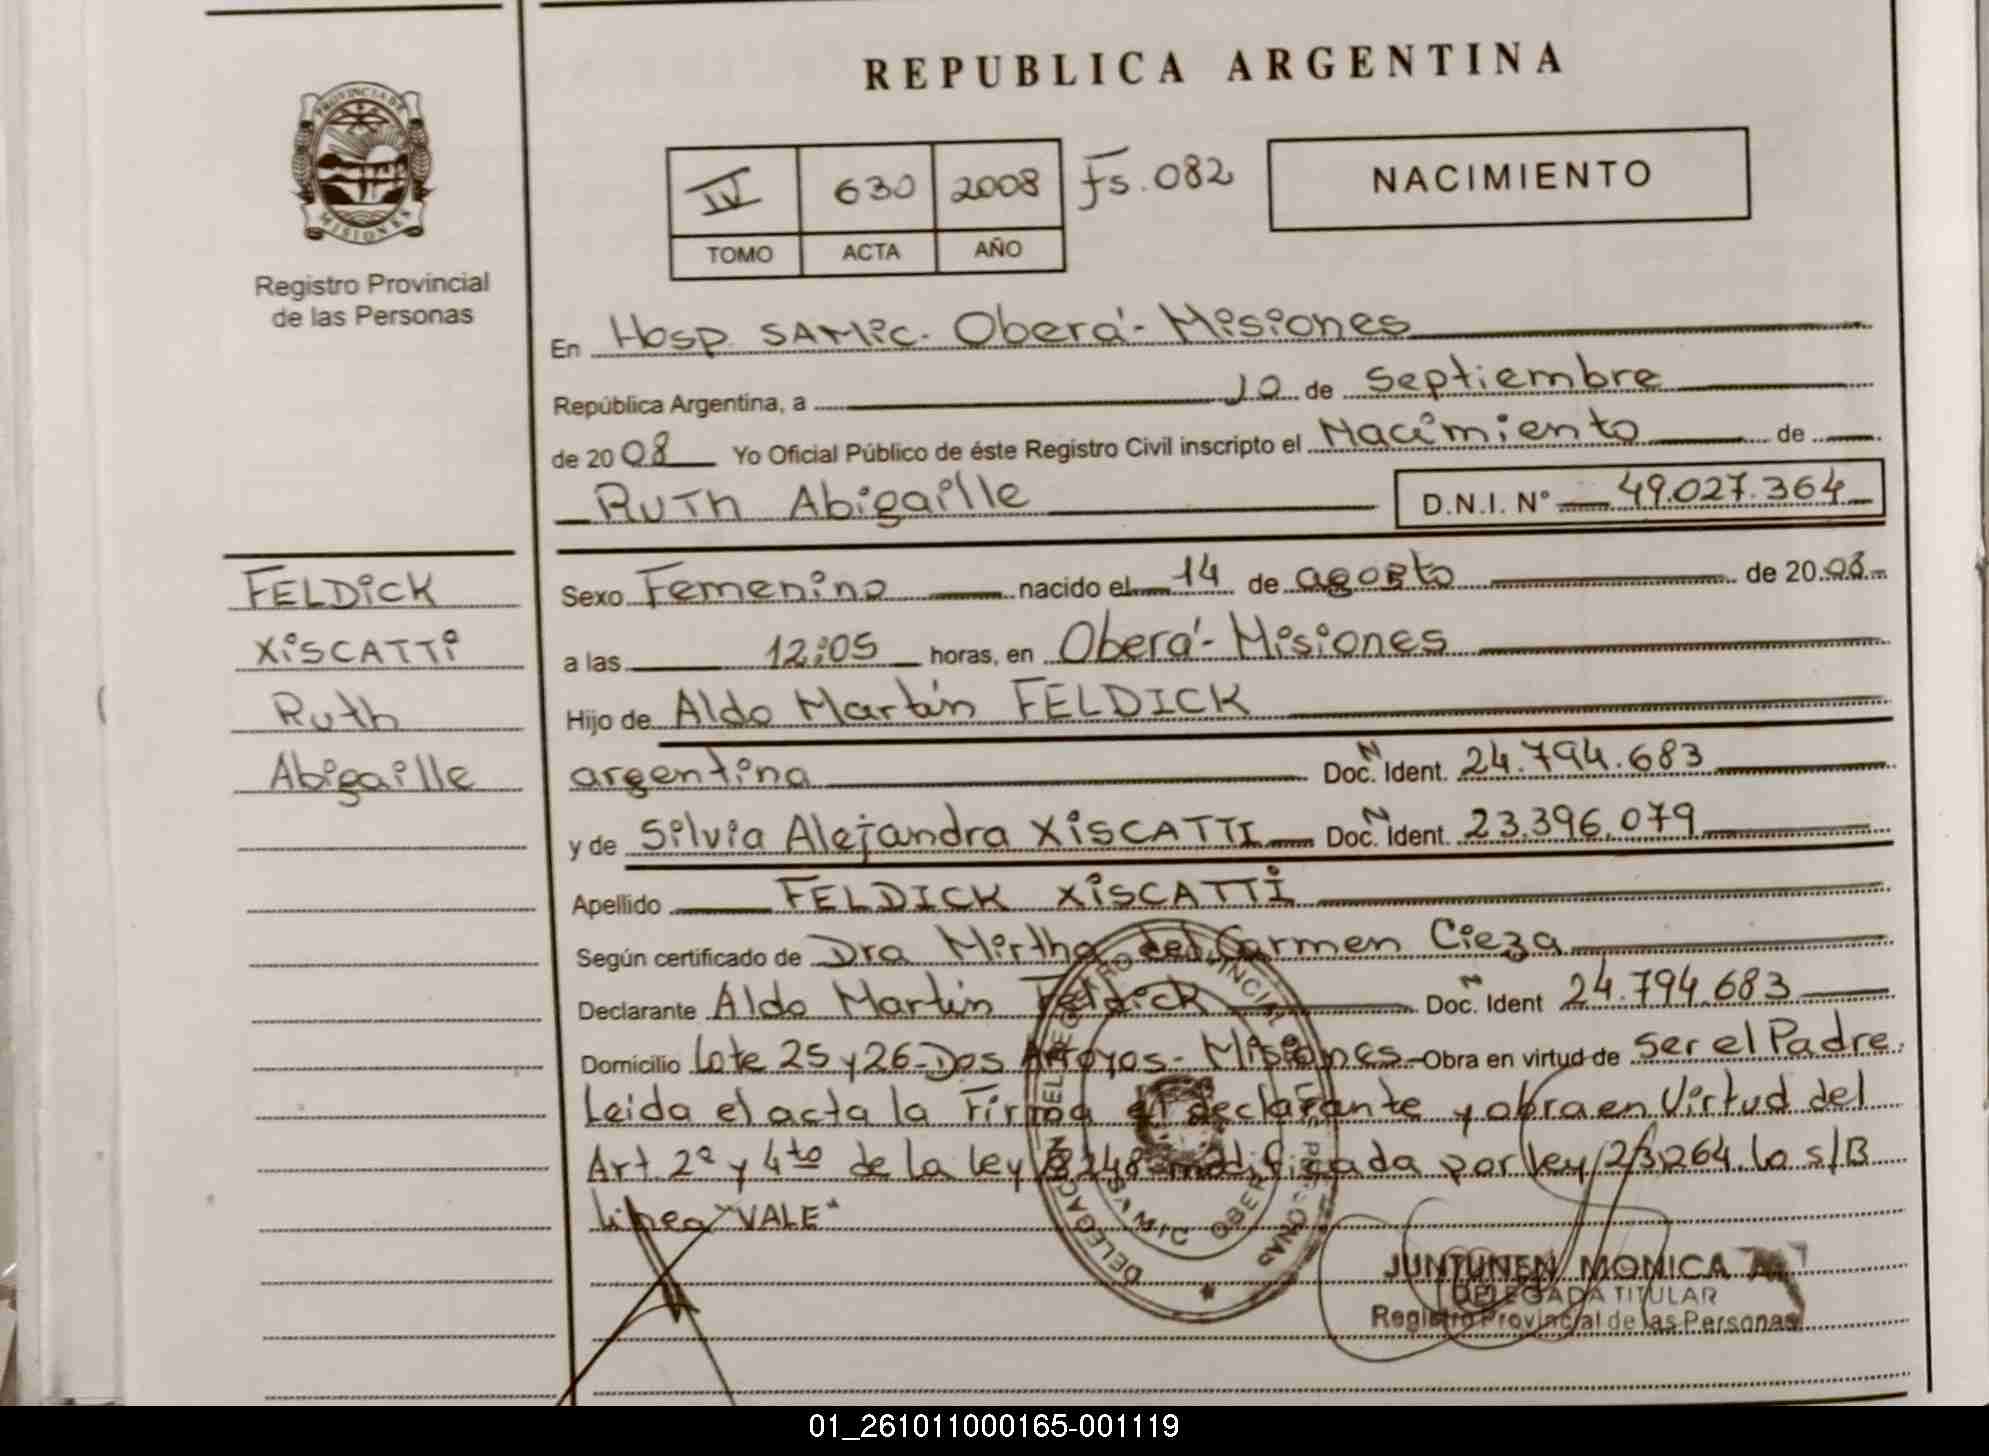 REPUBLICA ARGENTINA
PROVINCIA DE MISIONES
Registro Provincial
de las Personas
IV 630 2008 Fs. 082
TOMO ACTA AÑO
NACIMIENTO
En Hosp. SAMic. Oberá - Misiones
República Argentina, a 10 de Septiembre
de 2008 Yo Oficial Público de éste Registro Civil inscripto el Nacimiento de
Ruth Abigaille D.N.I. Nº 49.027.364
FELDICK
XiSCATTi
Ruth
Abigaille
Sexo Femenino nacido el 14 de agosto de 2008
a las 12:05 horas, en Oberá - Misiones
Hijo de Aldo Martín FELDICK
argentina Doc. N Ident. 24.794.683
y de Silvia Alejandra XiSCATTI Doc. N Ident. 23.396.079
Apellido FELDICK XiSCATTi
Según certificado de Dra Mirtha del Carmen Cieza
Declarante Aldo Martín Feldick Doc. N Ident 24.794.683
Domicilio Lote 25 y 26 - Dos Arroyos - Misiones - Obra en virtud de ser el Padre.
Leida el acta la Firma el declarante y obra en Virtud del
Art. 2º y 4to de la ley 18248 modificada por ley 23.264. Lo s/B
Línea "VALE"
DELEGACION DEL REGISTRO PROVINCIAL
JUNTUNEN MONICA A.
DELEGADA TITULAR
Registro Provincial de las Personas
01_261011000165-001119